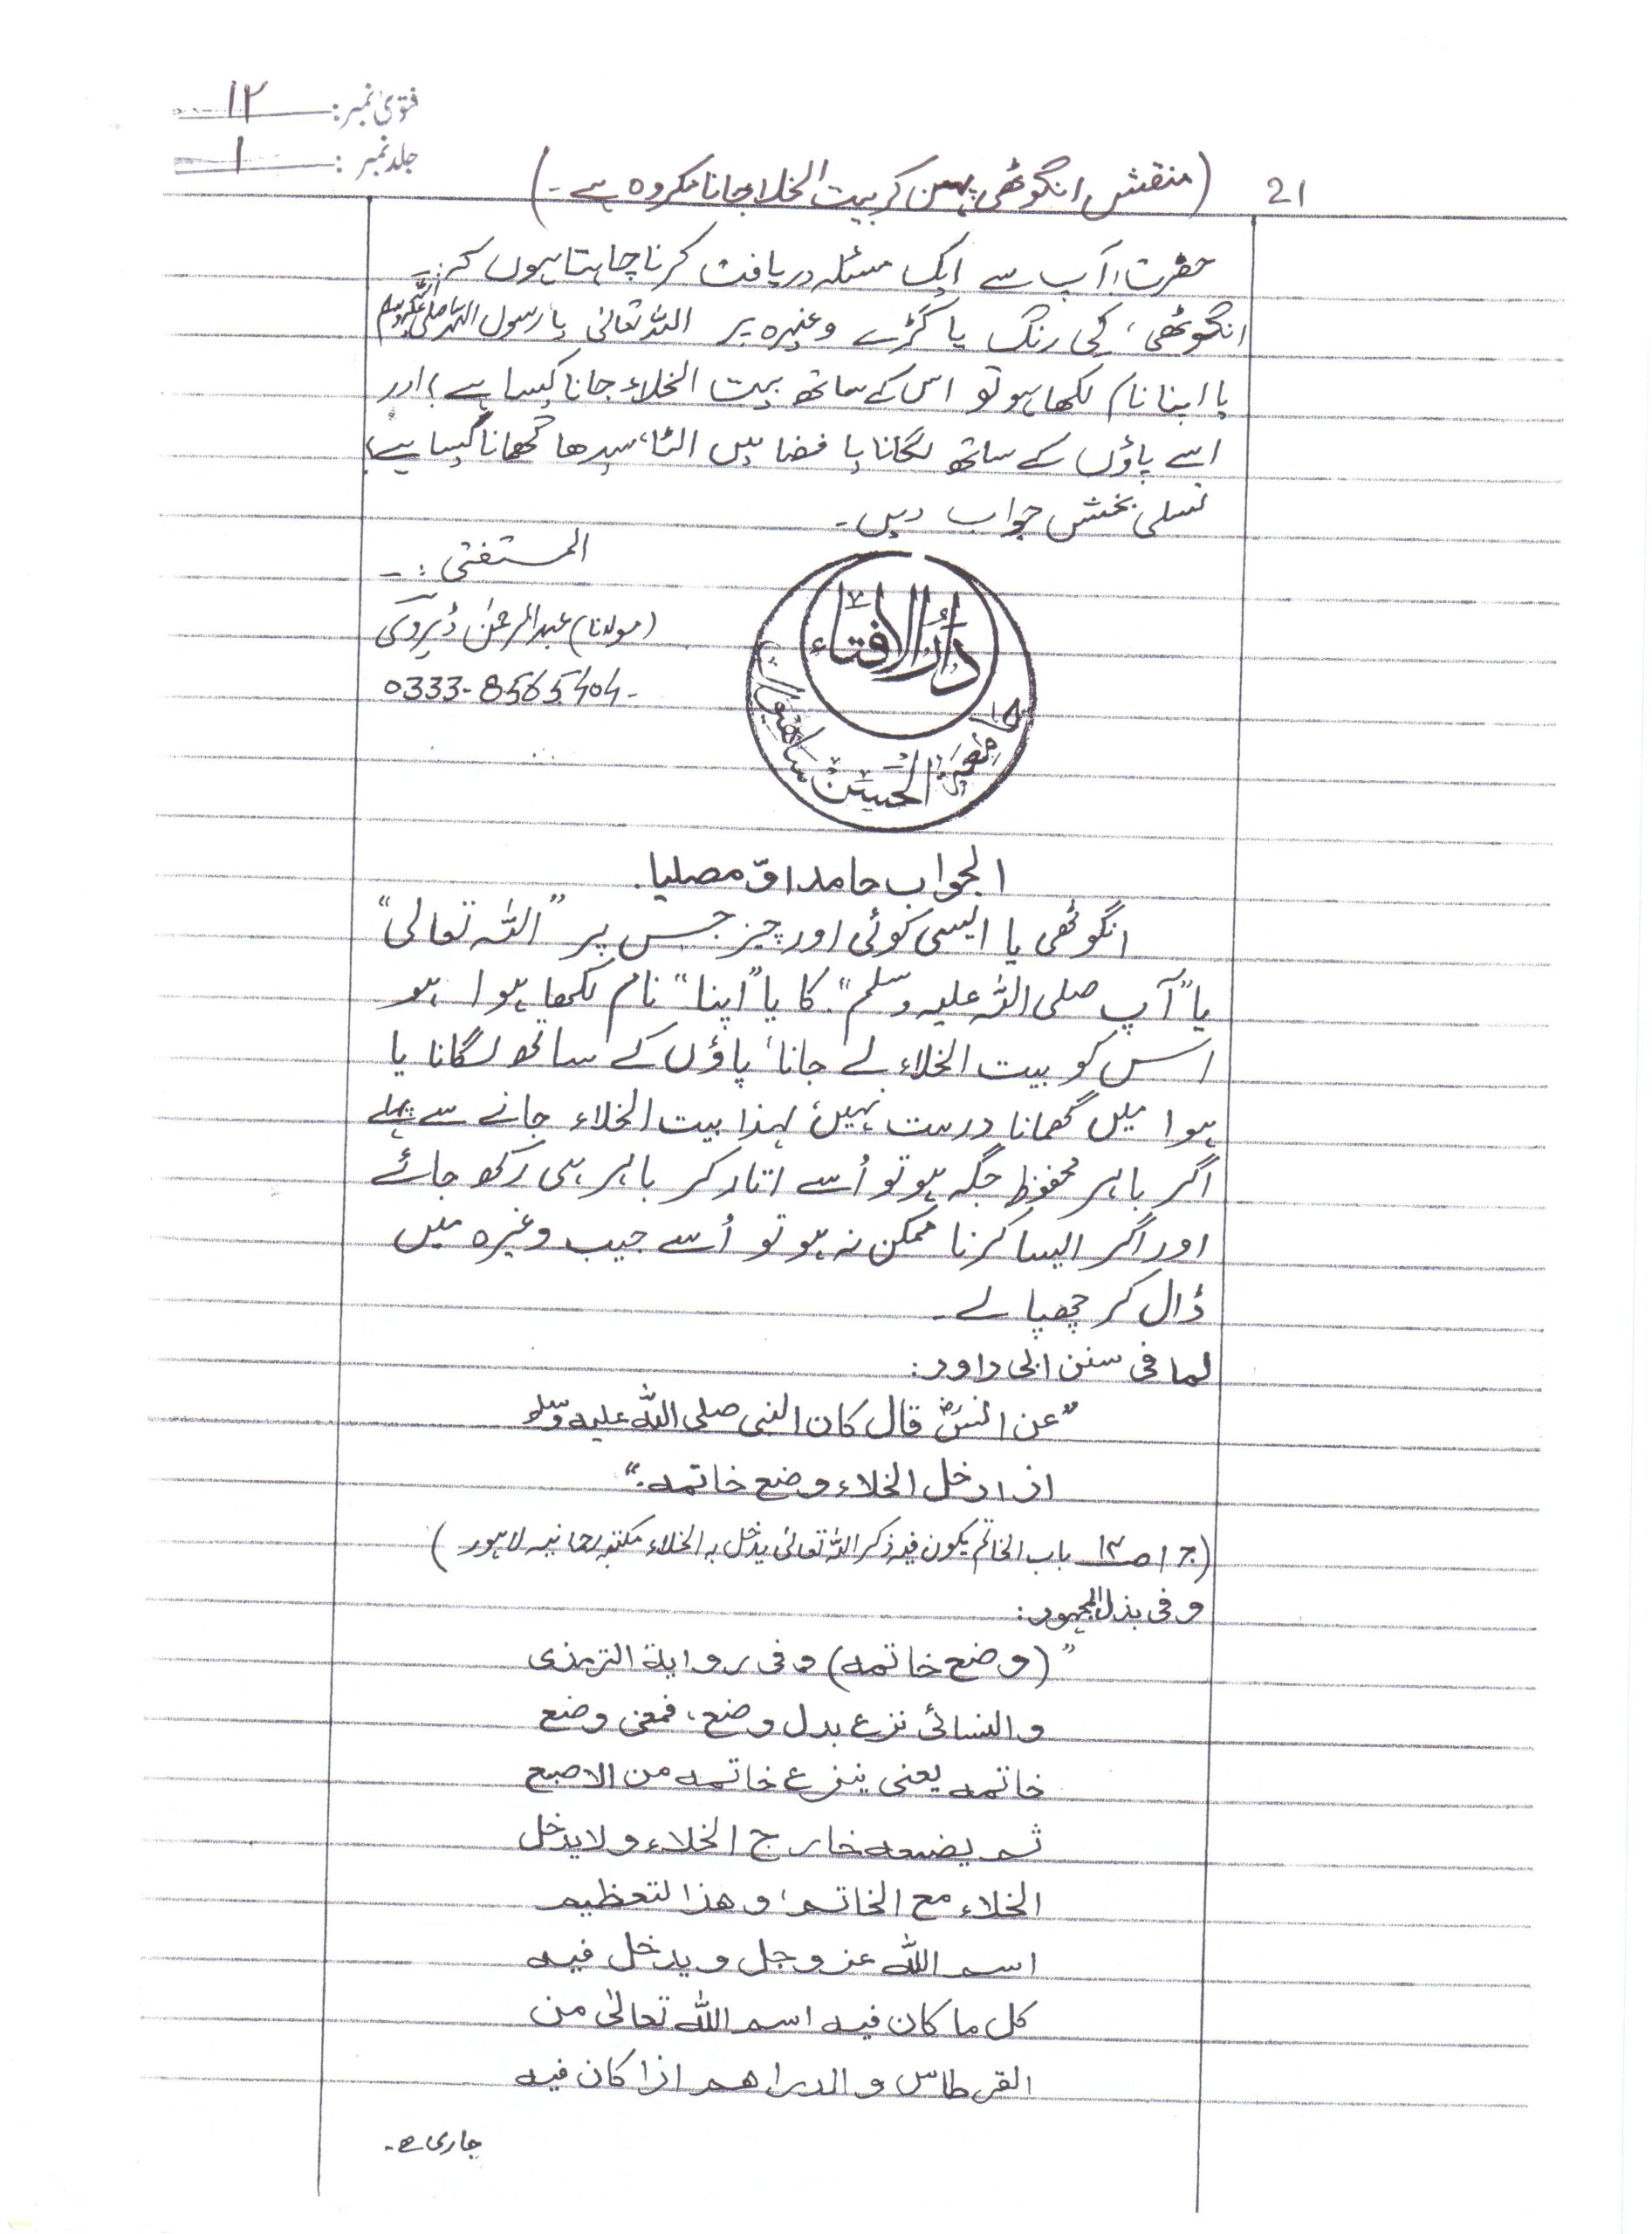 فتویٰ نمبر: ۱۲
جلد نمبر: ۱
21 (منقش انگوٹھی پہن کر بیت الخلا جانا مکروہ ہے۔)
حضرت! آپ سے ایک مسئلہ دریافت کرنا چاہتا ہوں کہ:۔
انگوٹھی، کی رنگ یا کڑے وغیرہ پر اللہ تعالیٰ یا رسول اللہ صلی اللہ علیہ وسلم
یا اپنا نام لکھا ہو تو اس کے ساتھ بیت الخلاء جانا کیسا ہے؟ اور
اسے پاؤں کے ساتھ لگانا یا فضا میں الٹا، سیدھا گھمانا کیسا ہے؟
تسلی بخش جواب دیں۔
المستفتی :۔
(مولانا) عبدالرحمٰن ڈیروی
0333-8565404-
دَارُ الافتاء
جامعۃ الحسن ساھیوال
الجواب حامداً وّ مصلیا۔
انگوٹھی یا ایسی کوئی اور چیز جس پر "اللہ تعالیٰ"
یا "آپ صلی اللہ علیہ وسلم" کا یا "اپنا" نام لکھا ہوا ہو
اس کو بیت الخلاء لے جانا، پاؤں کے ساتھ لگانا یا
ہوا میں گھمانا درست نہیں، لہذا بیت الخلاء جانے سے پہلے
اگر باہر محفوظ جگہ ہو تو اُسے اتار کر باہر ہی رکھ جائے
اور اگر ایسا کرنا ممکن نہ ہو تو اُسے جیب وغیرہ میں
ڈال کر چھپا لے۔
لما فی سنن ابی داود:
"عن انسؓ قال کان النبی صلی اللہ علیہ وسلم
اذا دخل الخلاء وضع خاتمہ."
(ج ۱ ص ۱۳ باب الخاتم یکون فیہ ذکر اللہ تعالیٰ یدخل بہ الخلاء مکتبہ رحمانیہ لاہور)
و فی بذل المجہود:
"(وضع خاتمہ) و فی روایۃ الترمذی
و النسائی نزع بدل وضع، فمعنی وضع
خاتمہ یعنی ینزع خاتمہ من الاصبع
ثم یضعہ خارج الخلاء و لا یدخل
الخلاء مع الخاتم، و ھذا لتعظیم
اسم اللہ عز و جل و یدخل فیہ
کل ما کان فیہ اسم اللہ تعالیٰ من
القرطاس و الدراھم اذا کان فیہ
جاری ہے۔